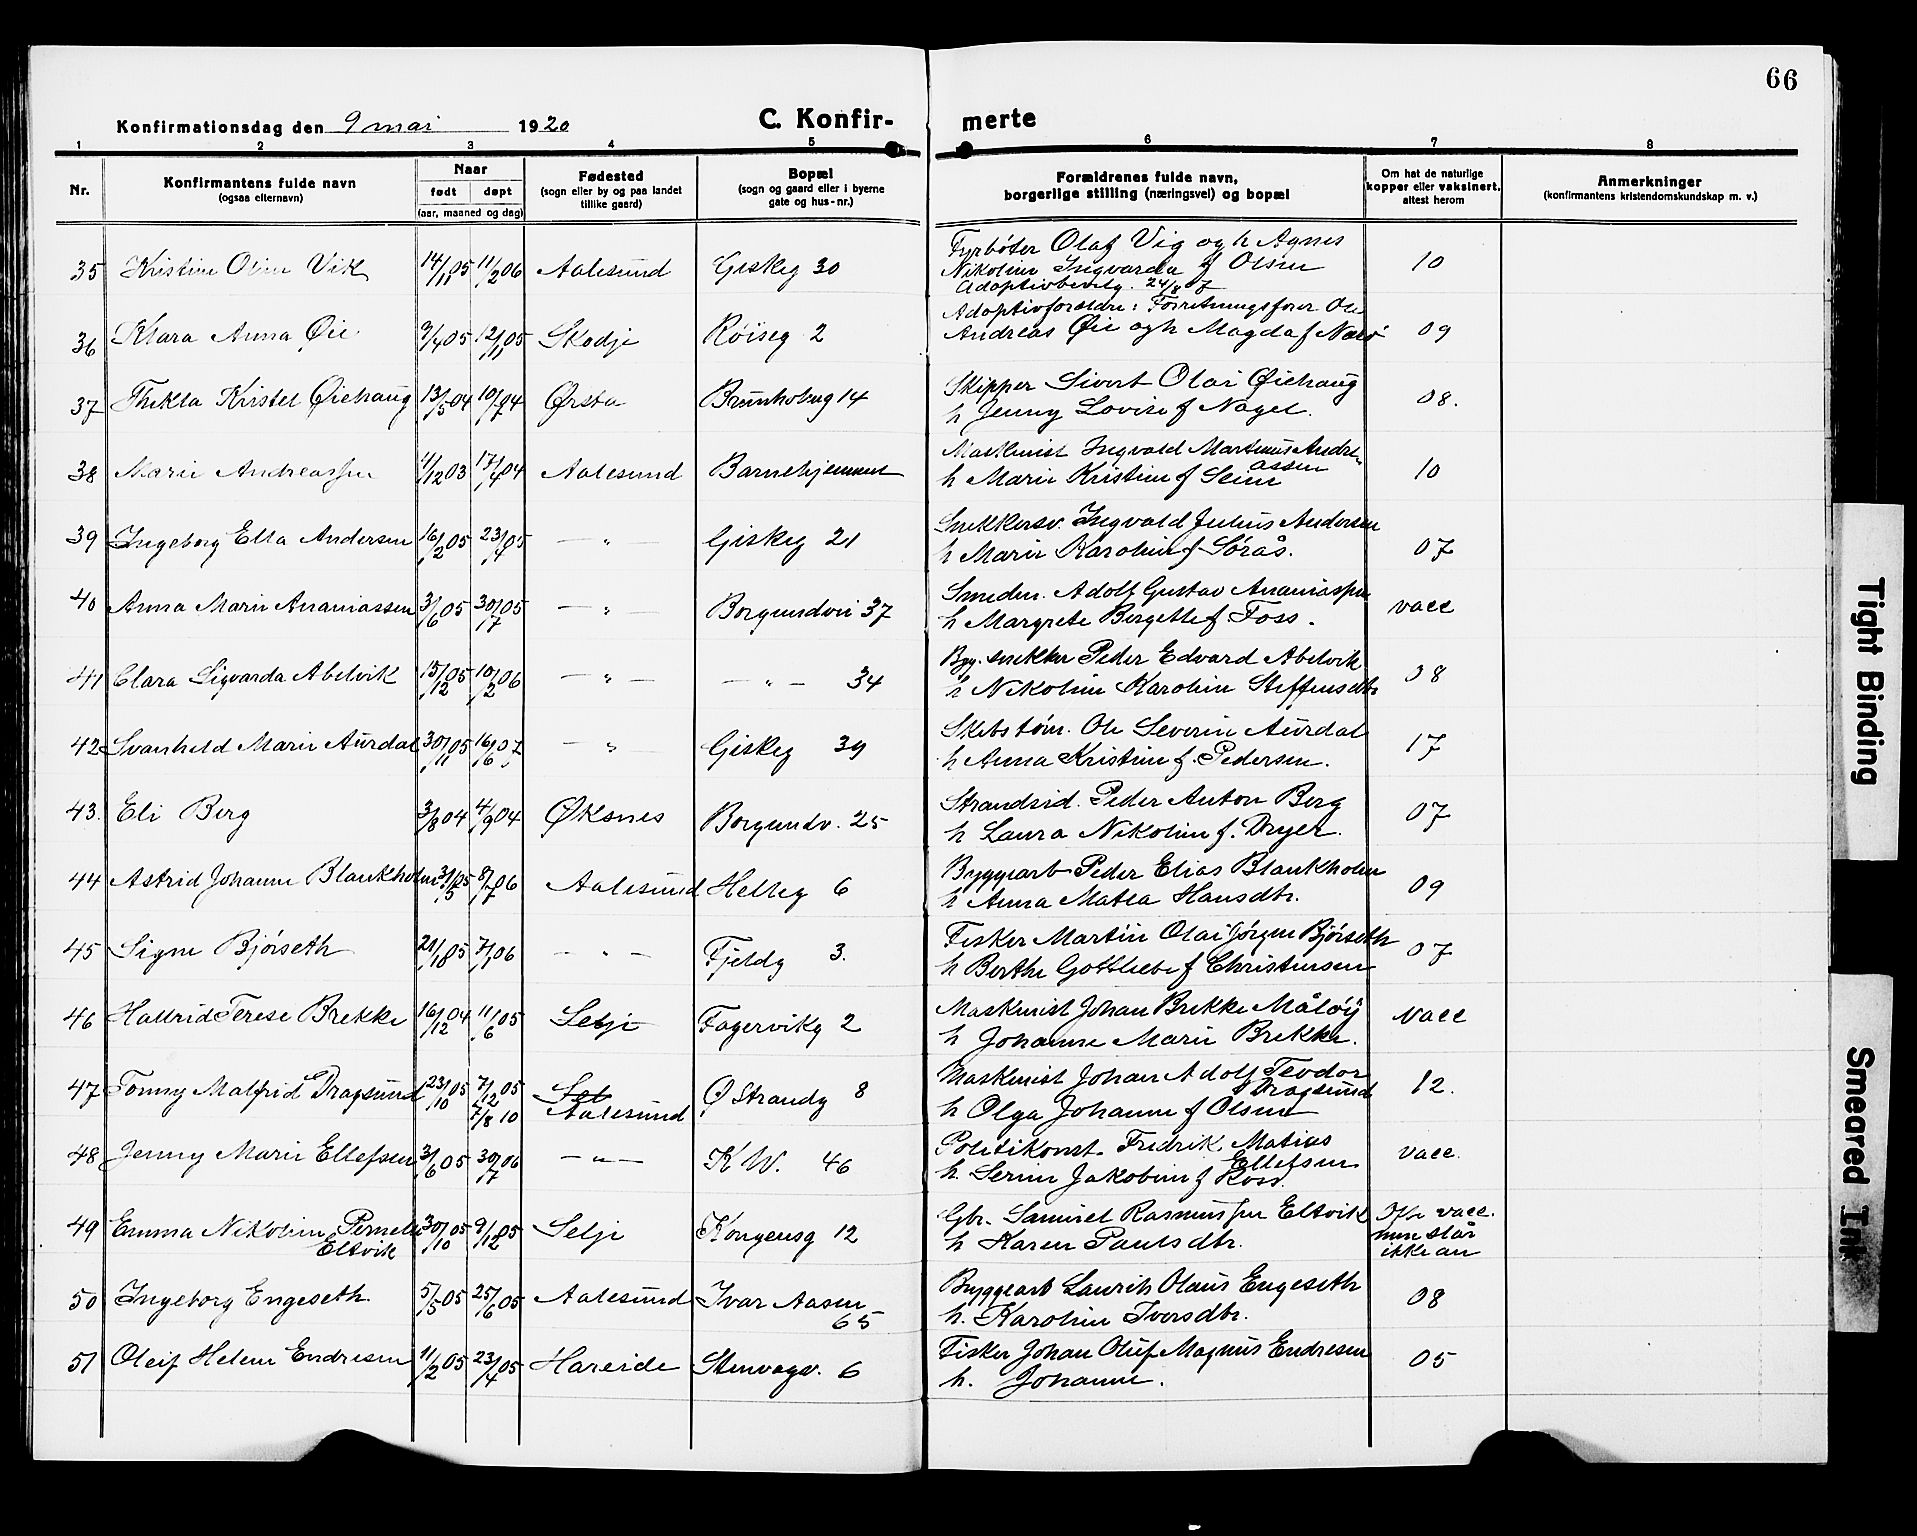 66
Konfirmationsdag den 9 mai 1920 C. Konfir- merte
1 2 3 4 5 6 7 8
Nr. Konfirmantens fulde navn (ogsaa elternavn) Naar født døpt (aar, maaned og dag) Fødested (sogn eller by og paa landet tillike gaard) Bopæl (sogn og gaard eller i byerne gate og hus-nr.) Forældrenes fulde navn, borgerlige stilling (næringsvei) og bopæl Om hat de naturlige kopper eller vaksinert, altest herom Anmerkninger (konfirmantens kristendomskundskap m. v.)
35 Kristine Oline Vik 14/11 05 11/2 06 Aalesund Giskeg 30 Fyrbøter Olaf Vig og h Agnes
Nikoline Ingvarda f Olsen 10
Adoptivbevilg. 24/8 07
36 Klara Anna Øie 9/4 05 12/11 05 Skodje Røiseg 2 Adoptivforældre: Forretningsfører Ole
Andreas Øie og h Magda f Nærø 09
37 Thekla Kristel Øiehaug 13/5 04 10/7 04 Ørsta Brunholmg 14 Skipper Sivert Olai Øiehaug
h Jenny Lovise f Nagel. 08.
38 Marie Andreassen 4/12 03 17/4 04 Aalesund Barnehjemmet Maskinist Ingvald Martinus Andre-
assen
h Marie Kristine f 10
39 Ingeborg Ella Andersen 16/2 05 23/4 05 — " — Giskeg 21 Snekkersv. Ingvald Julius Andersen
h Marie Karoline f Sørås. 07
40 Anna Marie Ananiassen 3/6 05 30/7 05 — " — Borgundvei 37 Smedm. Adolf Gustav Ananiassen
h Margrete Bergette f Foss. vacc
41 Clara Sigvarda Abelvik 15/12 05 10/2 06 — " — — " — 34 Byg. snekker Peder Edvard Abelvik
h Nikoline Karoline Steffensdtr 08
42 Svanhild Marie Aurdal 30/11 05 16/6 07 — " — Giskeg 39 Skibstøm. Ole Severin Aurdal
h Anna Kristine f. Pedersen. 17
43. Eli Berg 3/8 04 4/9 04 Øksnes Borgundv. 25 Strandsid. Peder Anton Berg
h Laura Nikoline f. Dryer. 07
44 Astrid Johanne Blankholm 31/5 05 8/7 06 Aalesund Helleg 6 Byggearb Peder Elias Blankholm
h Anna Matea Hansdtr. 09
45 Signe Bjørseth 21/18 05 7/1 06 — " — Fjeldg 3. Fisker Martin Olai Jørgen Bjørseth
h Berthe Gottliebe f Christensen 07
46 Hallrid Terese Brekke 16/12 04 11/6 05 Selje Fagervikg 2 Maskinist Johan Brekke Måløy
h Johanne Marie Brekke. vacc
47 Tonny Malfrid Dragsund 23/10 05 7/12 05 Sel Ø Strandg 8 Maskinist Johan Adolf Teodor
7/8 10 Aalesund Dragsund 12.
h Olga Johanne f Olsen
48 Jenny Marie Ellefsen 3/6 05 30/7 06 — " — K W. 46 Politikonst. Fredrik Matias
Ellefsen vacc.
h. Serine Jakobine f Ross.
49 Emma Nikoline Pernele 30/10 05 9/12 05 Selje Kongensg 12 Gbr. Samuel Rasmussen Eltvik Ikke vacc.
Eltvik h Karen Paulsdtr. men slår
ikke an
50 Ingeborg Engeseth 5/5 05 25/6 05 Aalesund Ivar Aasen- Byggearb Laurits Olaus Engeseth
65 h. Karoline Iversdtr. 08
51 Oleif Helene Endresen 11/2 05 23/4 05 Hareide Stenvagv. 6 Fisker Johan Oluf Magnus Endresen
h. Johanne. 05
Tight Binding
Smeared Ink